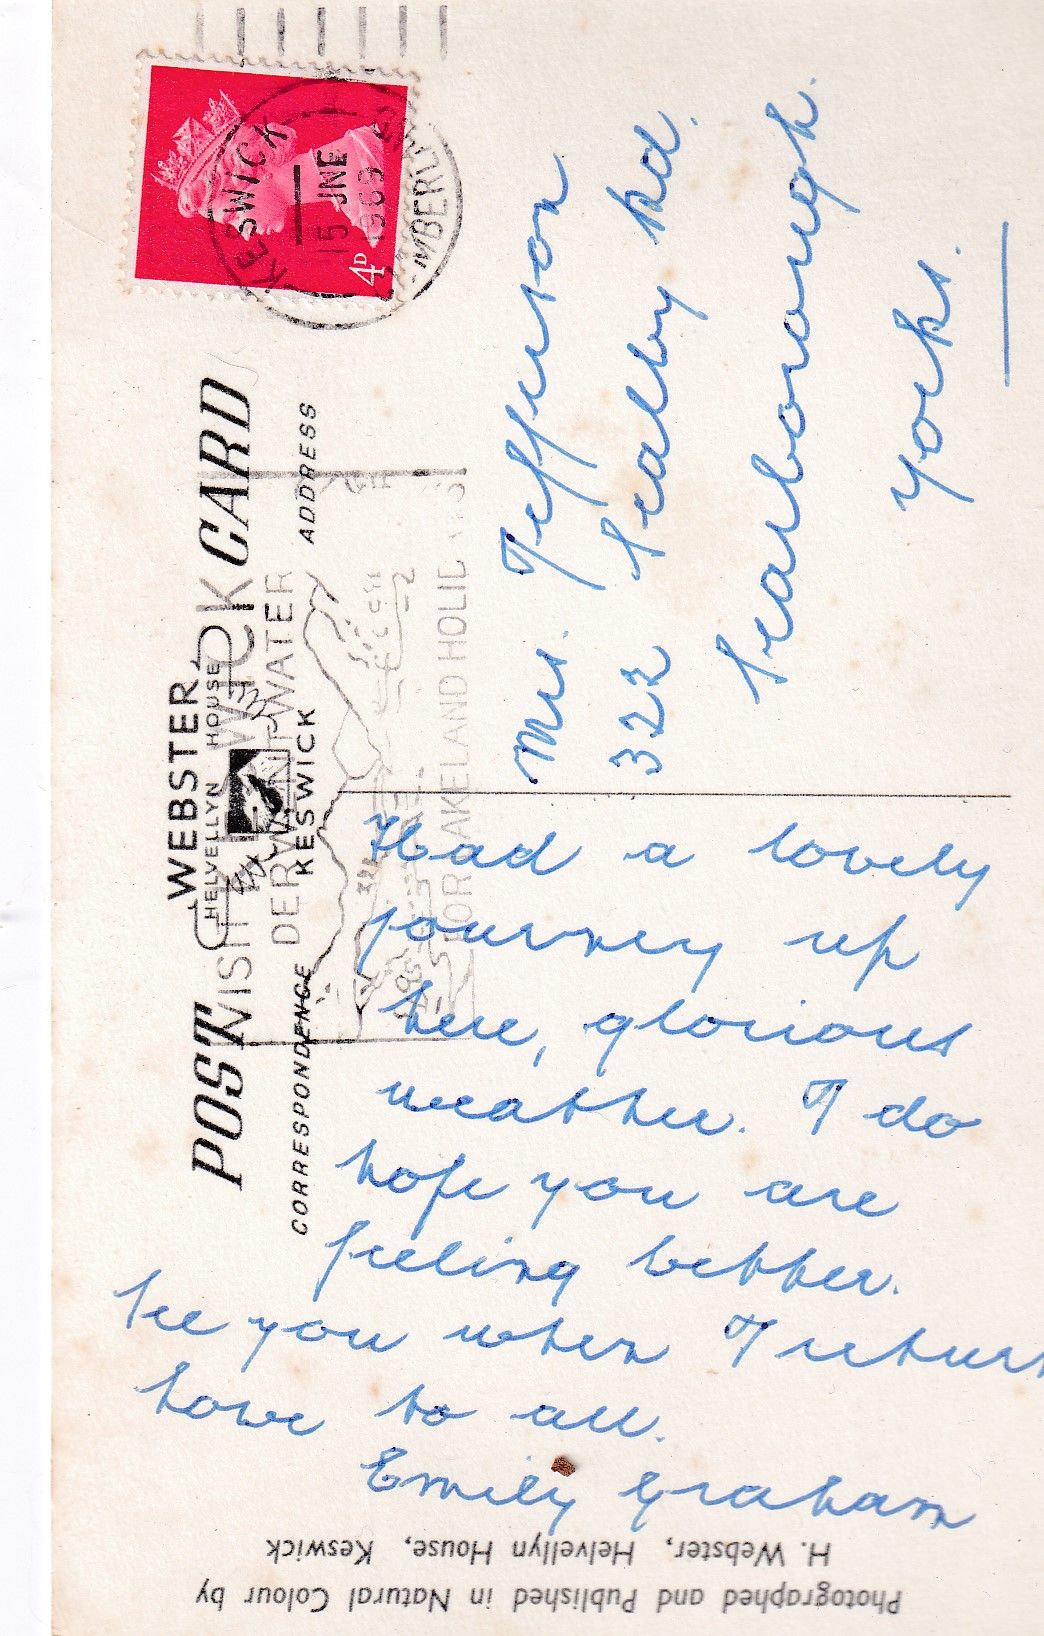 POST CARD
WEBSTER
HELVELLYN HOUSE
KESWICK
CORRESPONDENCE
ADDRESS
VISIT KESWICK
DERWENTWATER
FOR LAKELAND HOLIDAYS
KESWICK
15 JNE
1969
CUMBERLAND
4D
Mrs. Jefferson
322 Scalby Rd.
Scarborough.
Yorks.
Had a lovely
journey up
here, glorious
weather. I do
hope you are
feeling better.
See you when I return
Love to all.
Emily Graham
Photographed and Published in Natural Colour by
H. Webster, Helvellyn House, Keswick